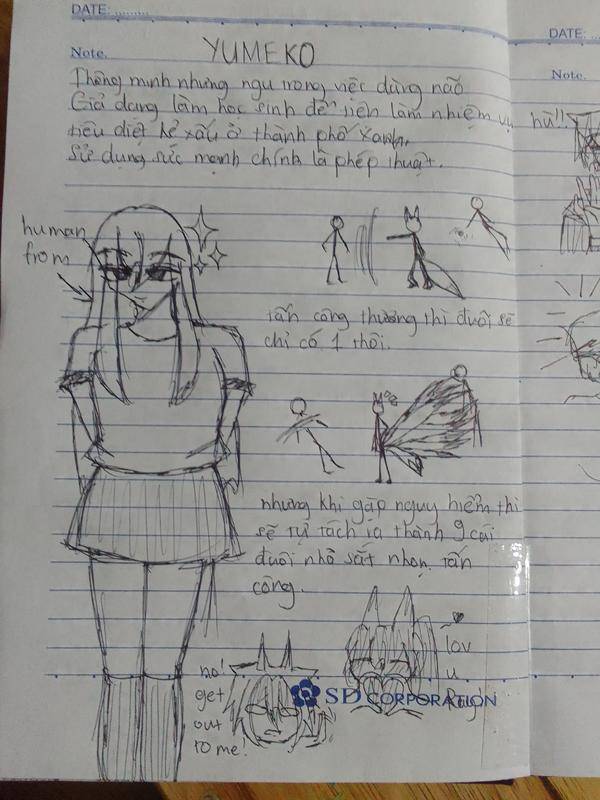 DATE: .........
Note.
YUMEKO
Thông minh nhưng ngu trong việc dùng não
Giả dạng làm học sinh để tiện làm nhiệm vụ
tiêu diệt kẻ xấu ở thành phố Xanh.
Sử dụng sức mạnh chính là phép thuật.
human
from
tấn công thường thì đuôi sẽ
chỉ có 1 thôi.
nhưng khi gặp nguy hiểm thì
sẽ tự tách ra thành 9 cái
đuôi nhỏ sắt nhọn tấn
công.
no!
get
out
to me!
lov
u
SD CORPORATION
DATE: ..
Note.
hù!!